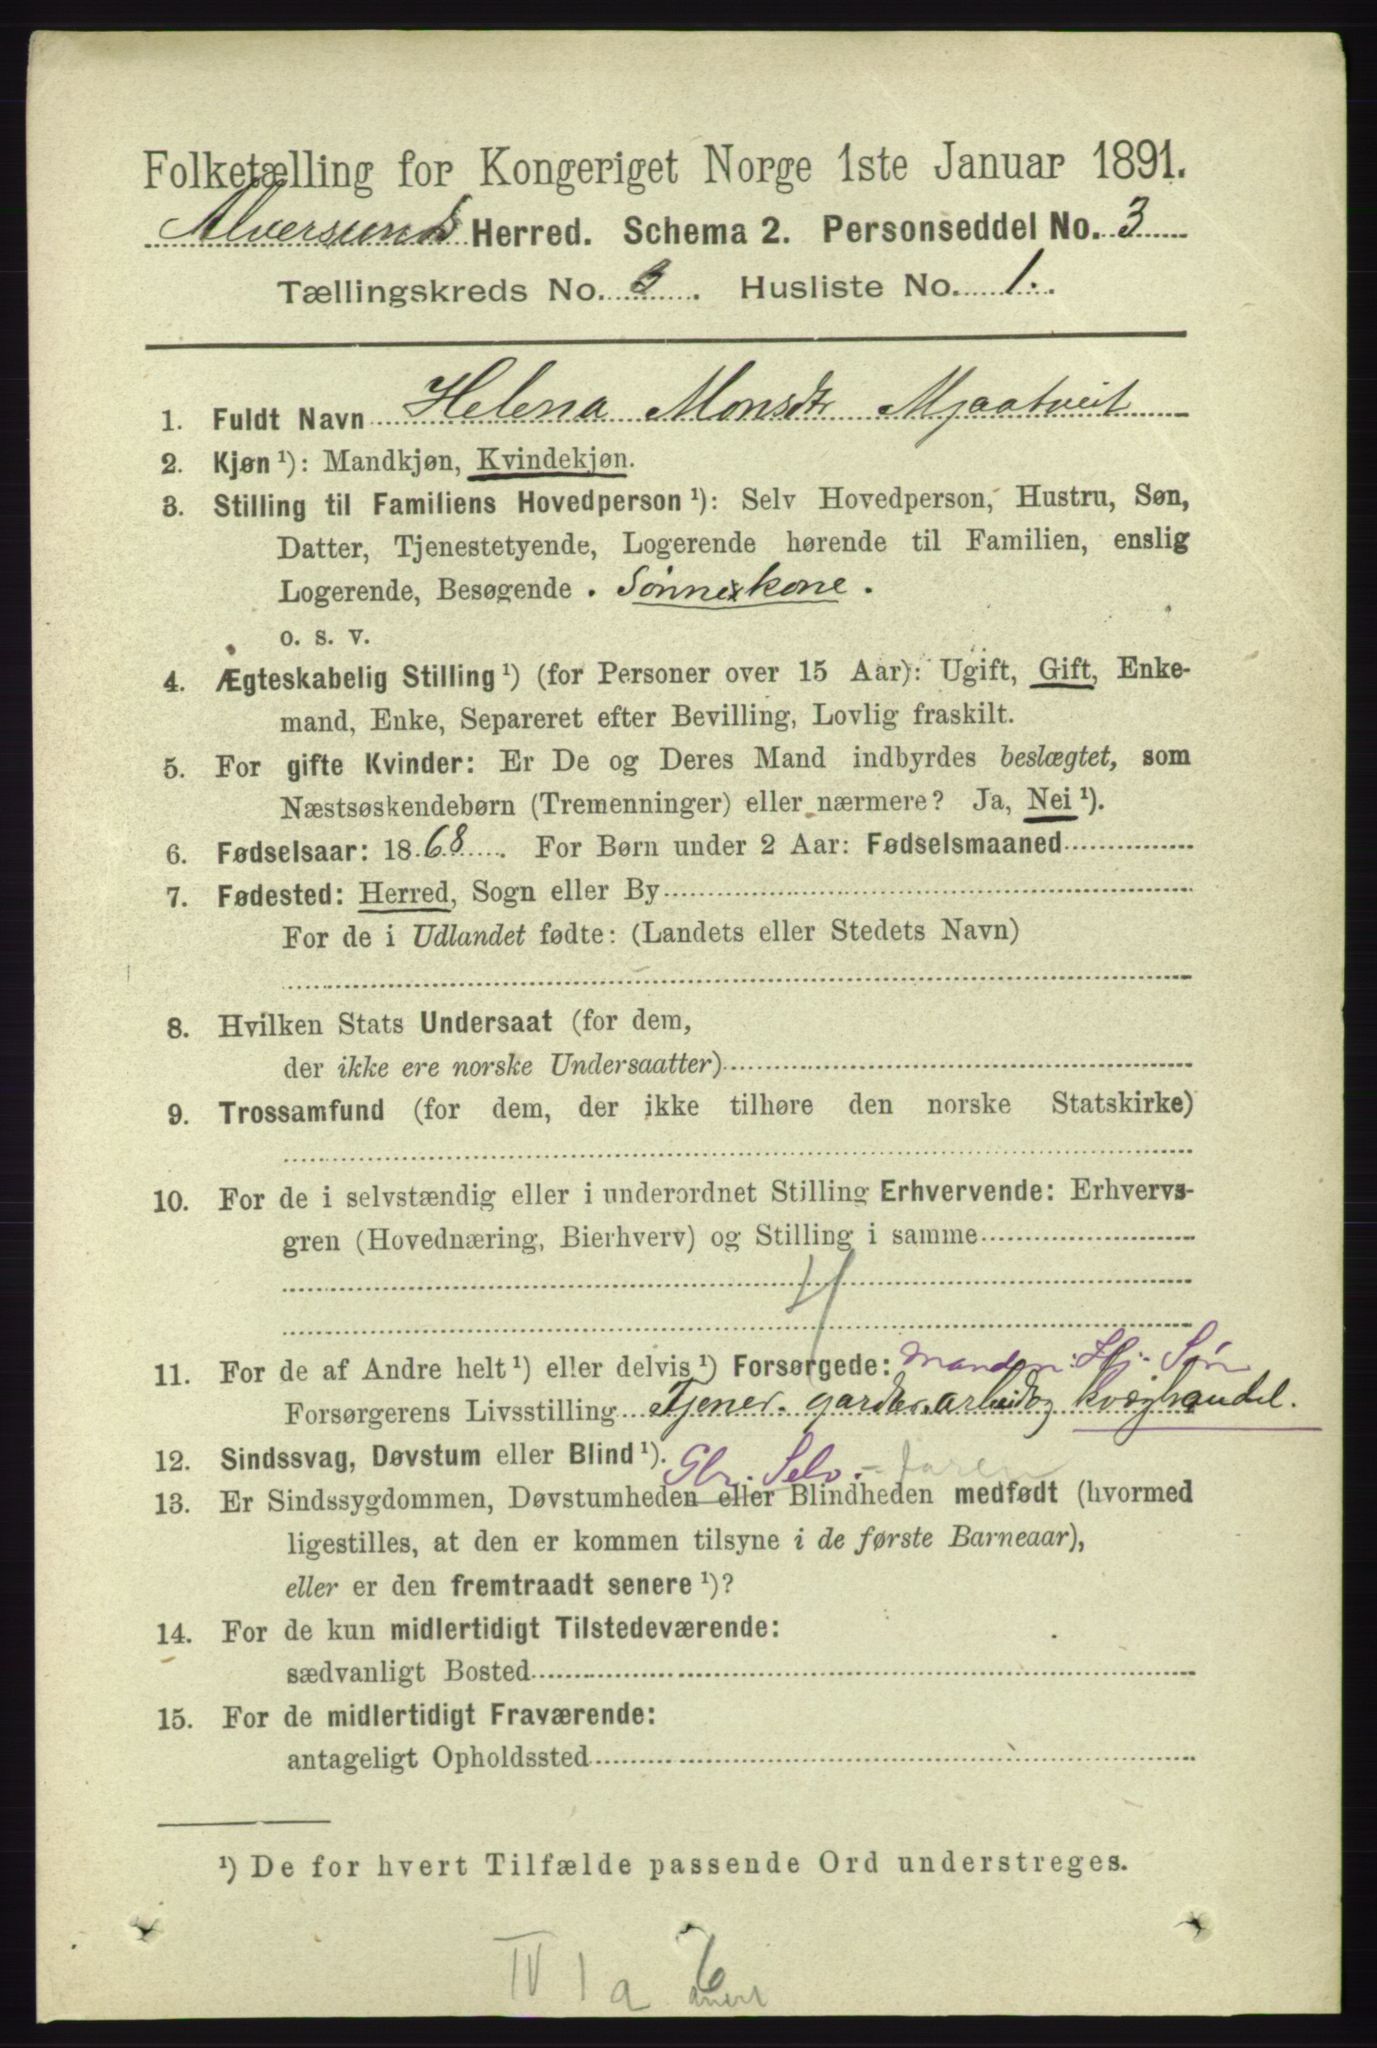 Folketælling for Kongeriget Norge 1ste Januar 1891.
Alversunds Herred. Schema 2. Personseddel No. 3
Tællingskreds No. 3. Husliste No. 1.
1. Fuldt Navn Helena Monsdtr Mjaatveit
2. Kjøn ¹): Mandkjøn, Kvindekjøn.
3. Stilling til Familiens Hovedperson ¹): Selv Hovedperson, Hustru, Søn,
Datter, Tjenestetyende, Logerende hørende til Familien, enslig
Logerende, Besøgende. Sønneskone.
o. s. v.
4. Ægteskabelig Stilling ¹) (for Personer over 15 Aar): Ugift, Gift, Enke-
mand, Enke, Separeret efter Bevilling, Lovlig fraskilt.
5. For gifte Kvinder: Er De og Deres Mand indbyrdes beslægtet, som
Næstsøskendebørn (Tremenninger) eller nærmere? Ja, Nei ¹).
6. Fødselsaar: 1868. For Børn under 2 Aar: Fødselsmaaned
7. Fødested: Herred, Sogn eller By
For de i Udlandet fødte: (Landets eller Stedets Navn)
8. Hvilken Stats Undersaat (for dem,
der ikke ere norske Undersaatter)
9. Trossamfund (for dem, der ikke tilhøre den norske Statskirke)
10. For de i selvstændig eller i underordnet Stilling Erhvervende: Erhvervs-
gren (Hovednæring, Bierhverv) og Stilling i samme
11. For de af Andre helt ¹) eller delvis ¹) Forsørgede: Manden: Hj. Søn
Forsørgerens Livsstilling Tjener. gardsarbeid og kvæghandel.
12. Sindssvag, Døvstum eller Blind ¹). Selv.
13. Er Sindssygdommen, Døvstumheden eller Blindheden medfødt (hvormed
ligestilles, at den er kommen tilsyne i de første Barneaar),
eller er den fremtraadt senere ¹)?
14. For de kun midlertidigt Tilstedeværende:
sædvanligt Bosted
15. For de midlertidigt Fraværende:
antageligt Opholdssted
¹) De for hvert Tilfælde passende Ord understreges.
IV 1 a